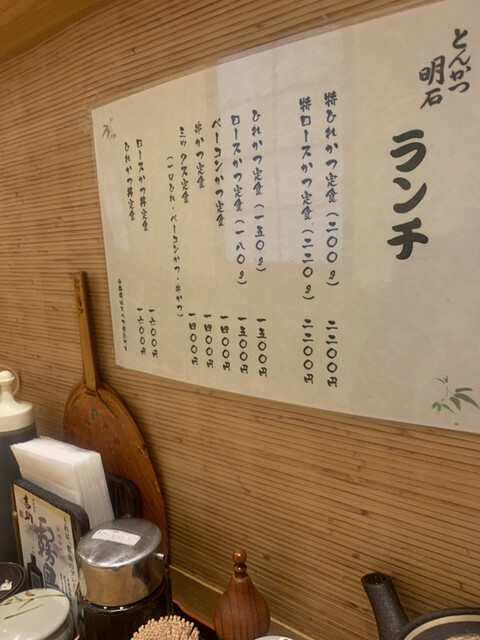 とんかつ
明石
ランチ
特ひれかつ定食(二〇〇g) 二二〇〇円
特ロースかつ定食(二二〇g) 二二〇〇円
ひれかつ定食(一五〇g) 一五〇〇円
ロースかつ定食(一八〇g) 一五〇〇円
ベーコンかつ定食 一四〇〇円
串かつ定食 一四〇〇円
ミックス定食 一四〇〇円
(一口ひれ・ベーコンかつ・串かつ)
ロースかつ丼定食 一六〇〇円
ひれかつ丼定食 一六〇〇円